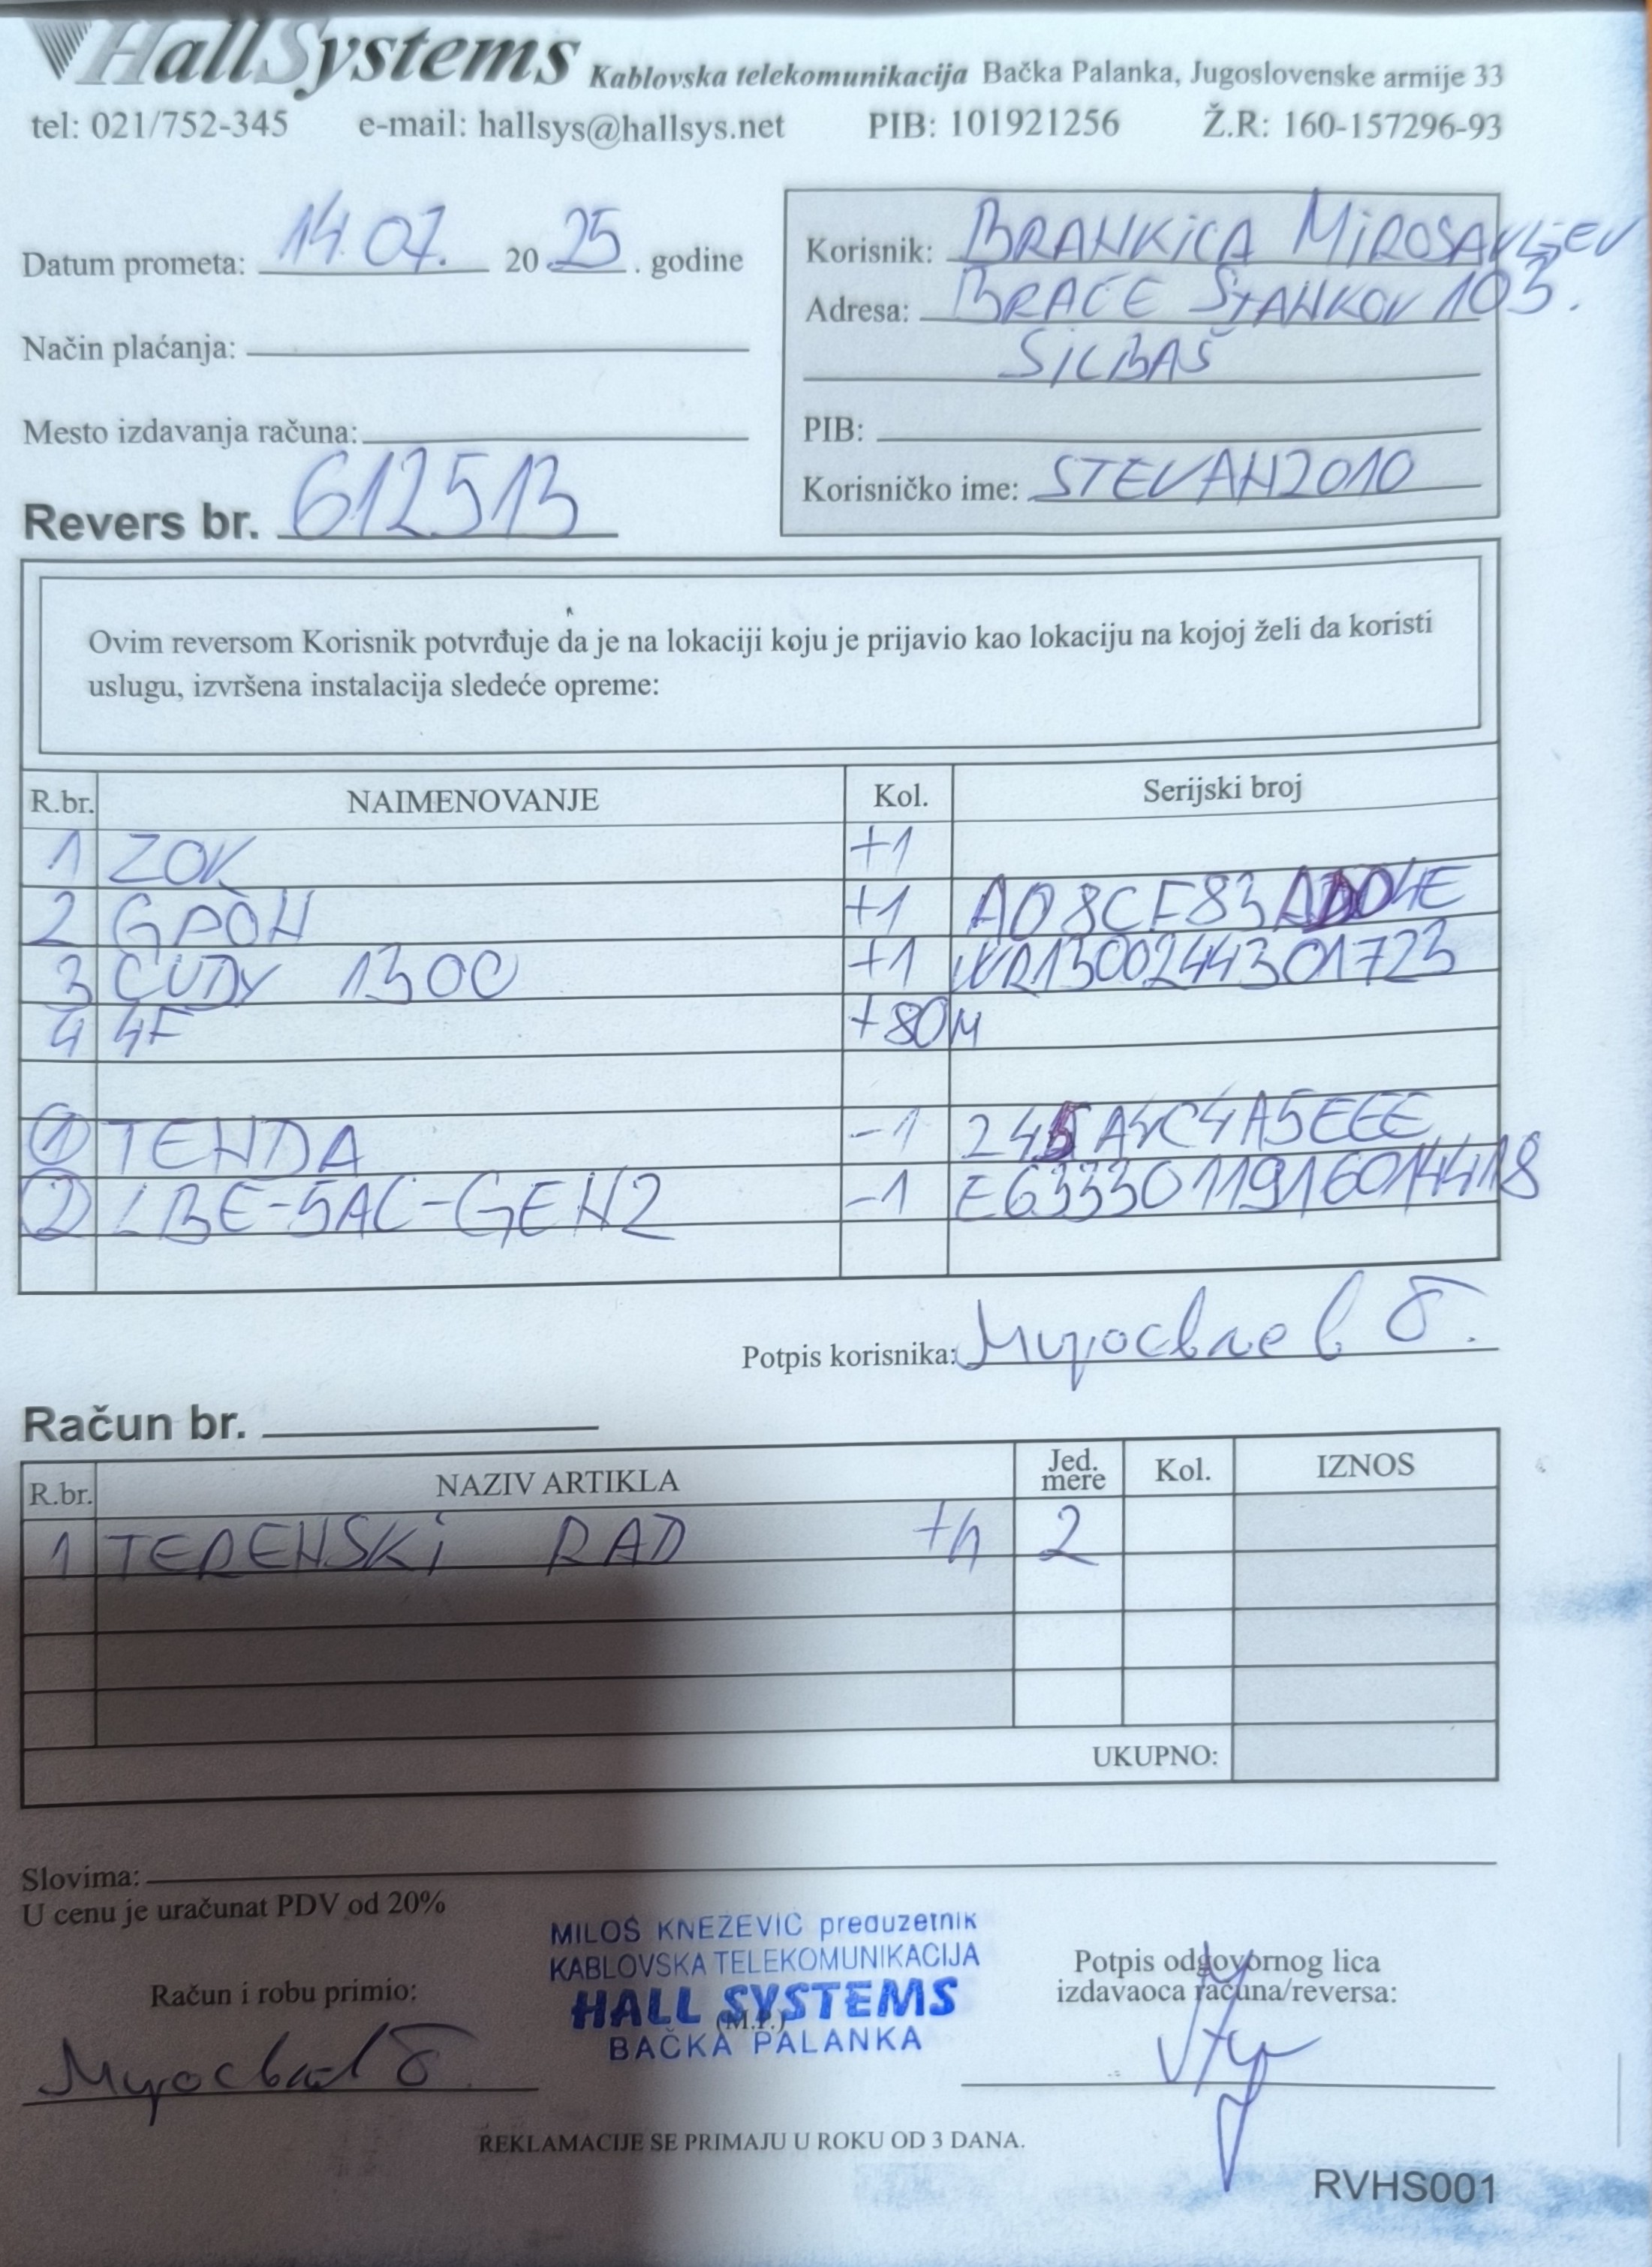 HallSystems Kablovska telekomunikacija Bačka Palanka, Jugoslovenske armije 33
tel: 021/752-345 e-mail: hallsys@hallsys.net PIB: 101921256 Ž.R: 160-157296-93
Datum prometa: 14.07. 2025. godine
Način plaćanja:
Mesto izdavanja računa:
Revers br. 612513
Korisnik: BRANKICA MIROSAVLJEV
Adresa: BRAĆE STANKOV 103.
SILBAŠ
PIB:
Korisničko ime: STEVAN2010
Ovim reversom Korisnik potvrđuje da je na lokaciji koju je prijavio kao lokaciju na kojoj želi da koristi
uslugu, izvršena instalacija sledeće opreme:
R.br. NAIMENOVANJE Kol. Serijski broj
1 ZOK +1
2 GPON +1
3 CUDY 1300 +1 WR1300244301723
4 4F +80M
1 TENDA -1
2 LBE-5AC-GEN2 -1
Potpis korisnika:
Račun br.
R.br. NAZIV ARTIKLA Jed. mere Kol. IZNOS
1 TERENSKI RAD +h 2
UKUPNO:
Slovima:
U cenu je uračunat PDV od 20%
MILOŠ KNEŽEVIĆ preduzetnik
KABLOVSKA TELEKOMUNIKACIJA
HALL SYSTEMS
(M.P.)
BAČKA PALANKA
Račun i robu primio:
Potpis odgovornog lica
izdavaoca računa/reversa:
REKLAMACIJE SE PRIMAJU U ROKU OD 3 DANA.
RVHS001